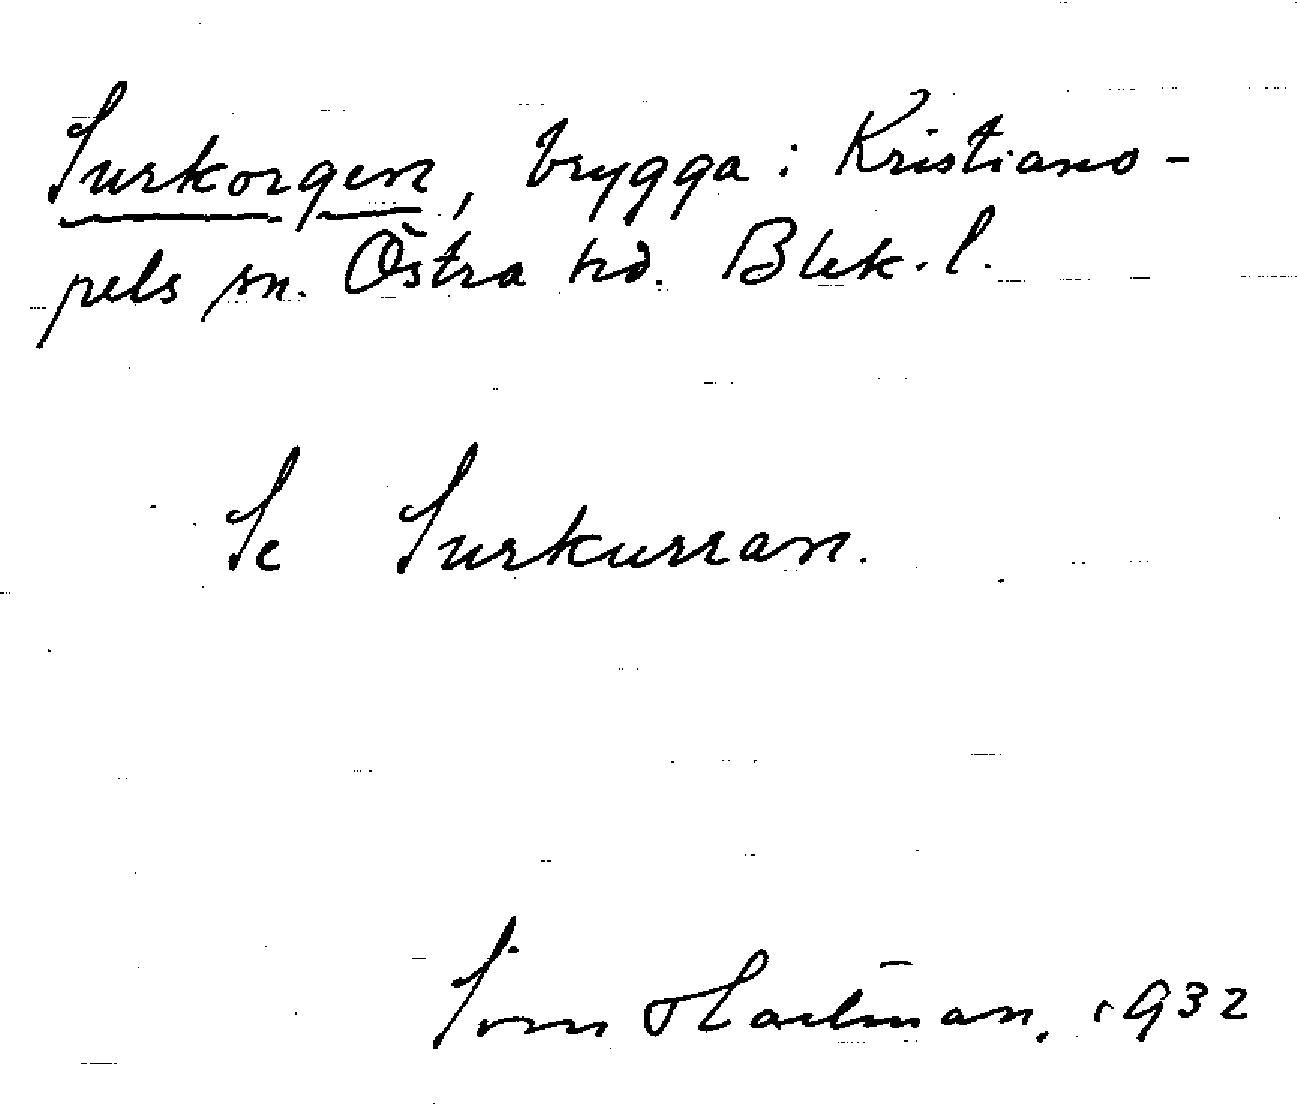 Surkorgen, brygga i Kristiano-
pels sn. Östra hd. Blek. l.
Se Surkurran.
Hartman, 1932